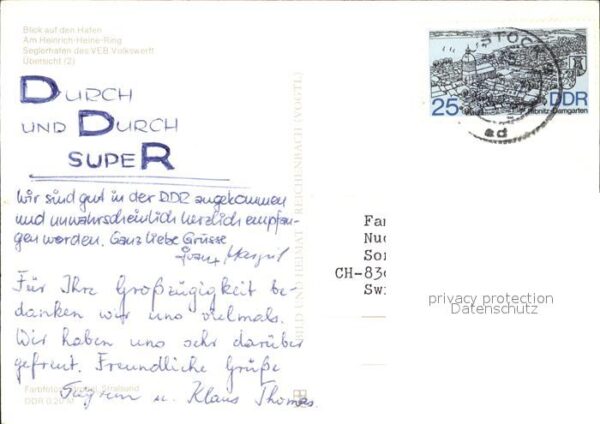 Blick auf den Hafen
Am Heinrich-Heine-Ring
Seglerhafen des VEB Volkswerft
Übersicht (2)
DURCH
UND DURCH
SUPER
Wir sind gut in der DDR angekommen
und unwahrscheinlich herzlich empfan-
gen worden. Ganz liebe Grüsse
Für Ihre Großzügigkeit be-
danken wir uns vielmals.
Wir haben uns sehr darüber
gefreut. Freundliche Grüße
u. Klaus Thomas.
Farbfoto: Stralsund
DDR 0,20 M
BILD UND HEIMAT REICHENBACH (VOGTL)
STOCK
25
DDR
Ribnitz-Damgarten
ad
Fa
Nuc
Son
CH-836
Swi
privacy protection
Datenschutz